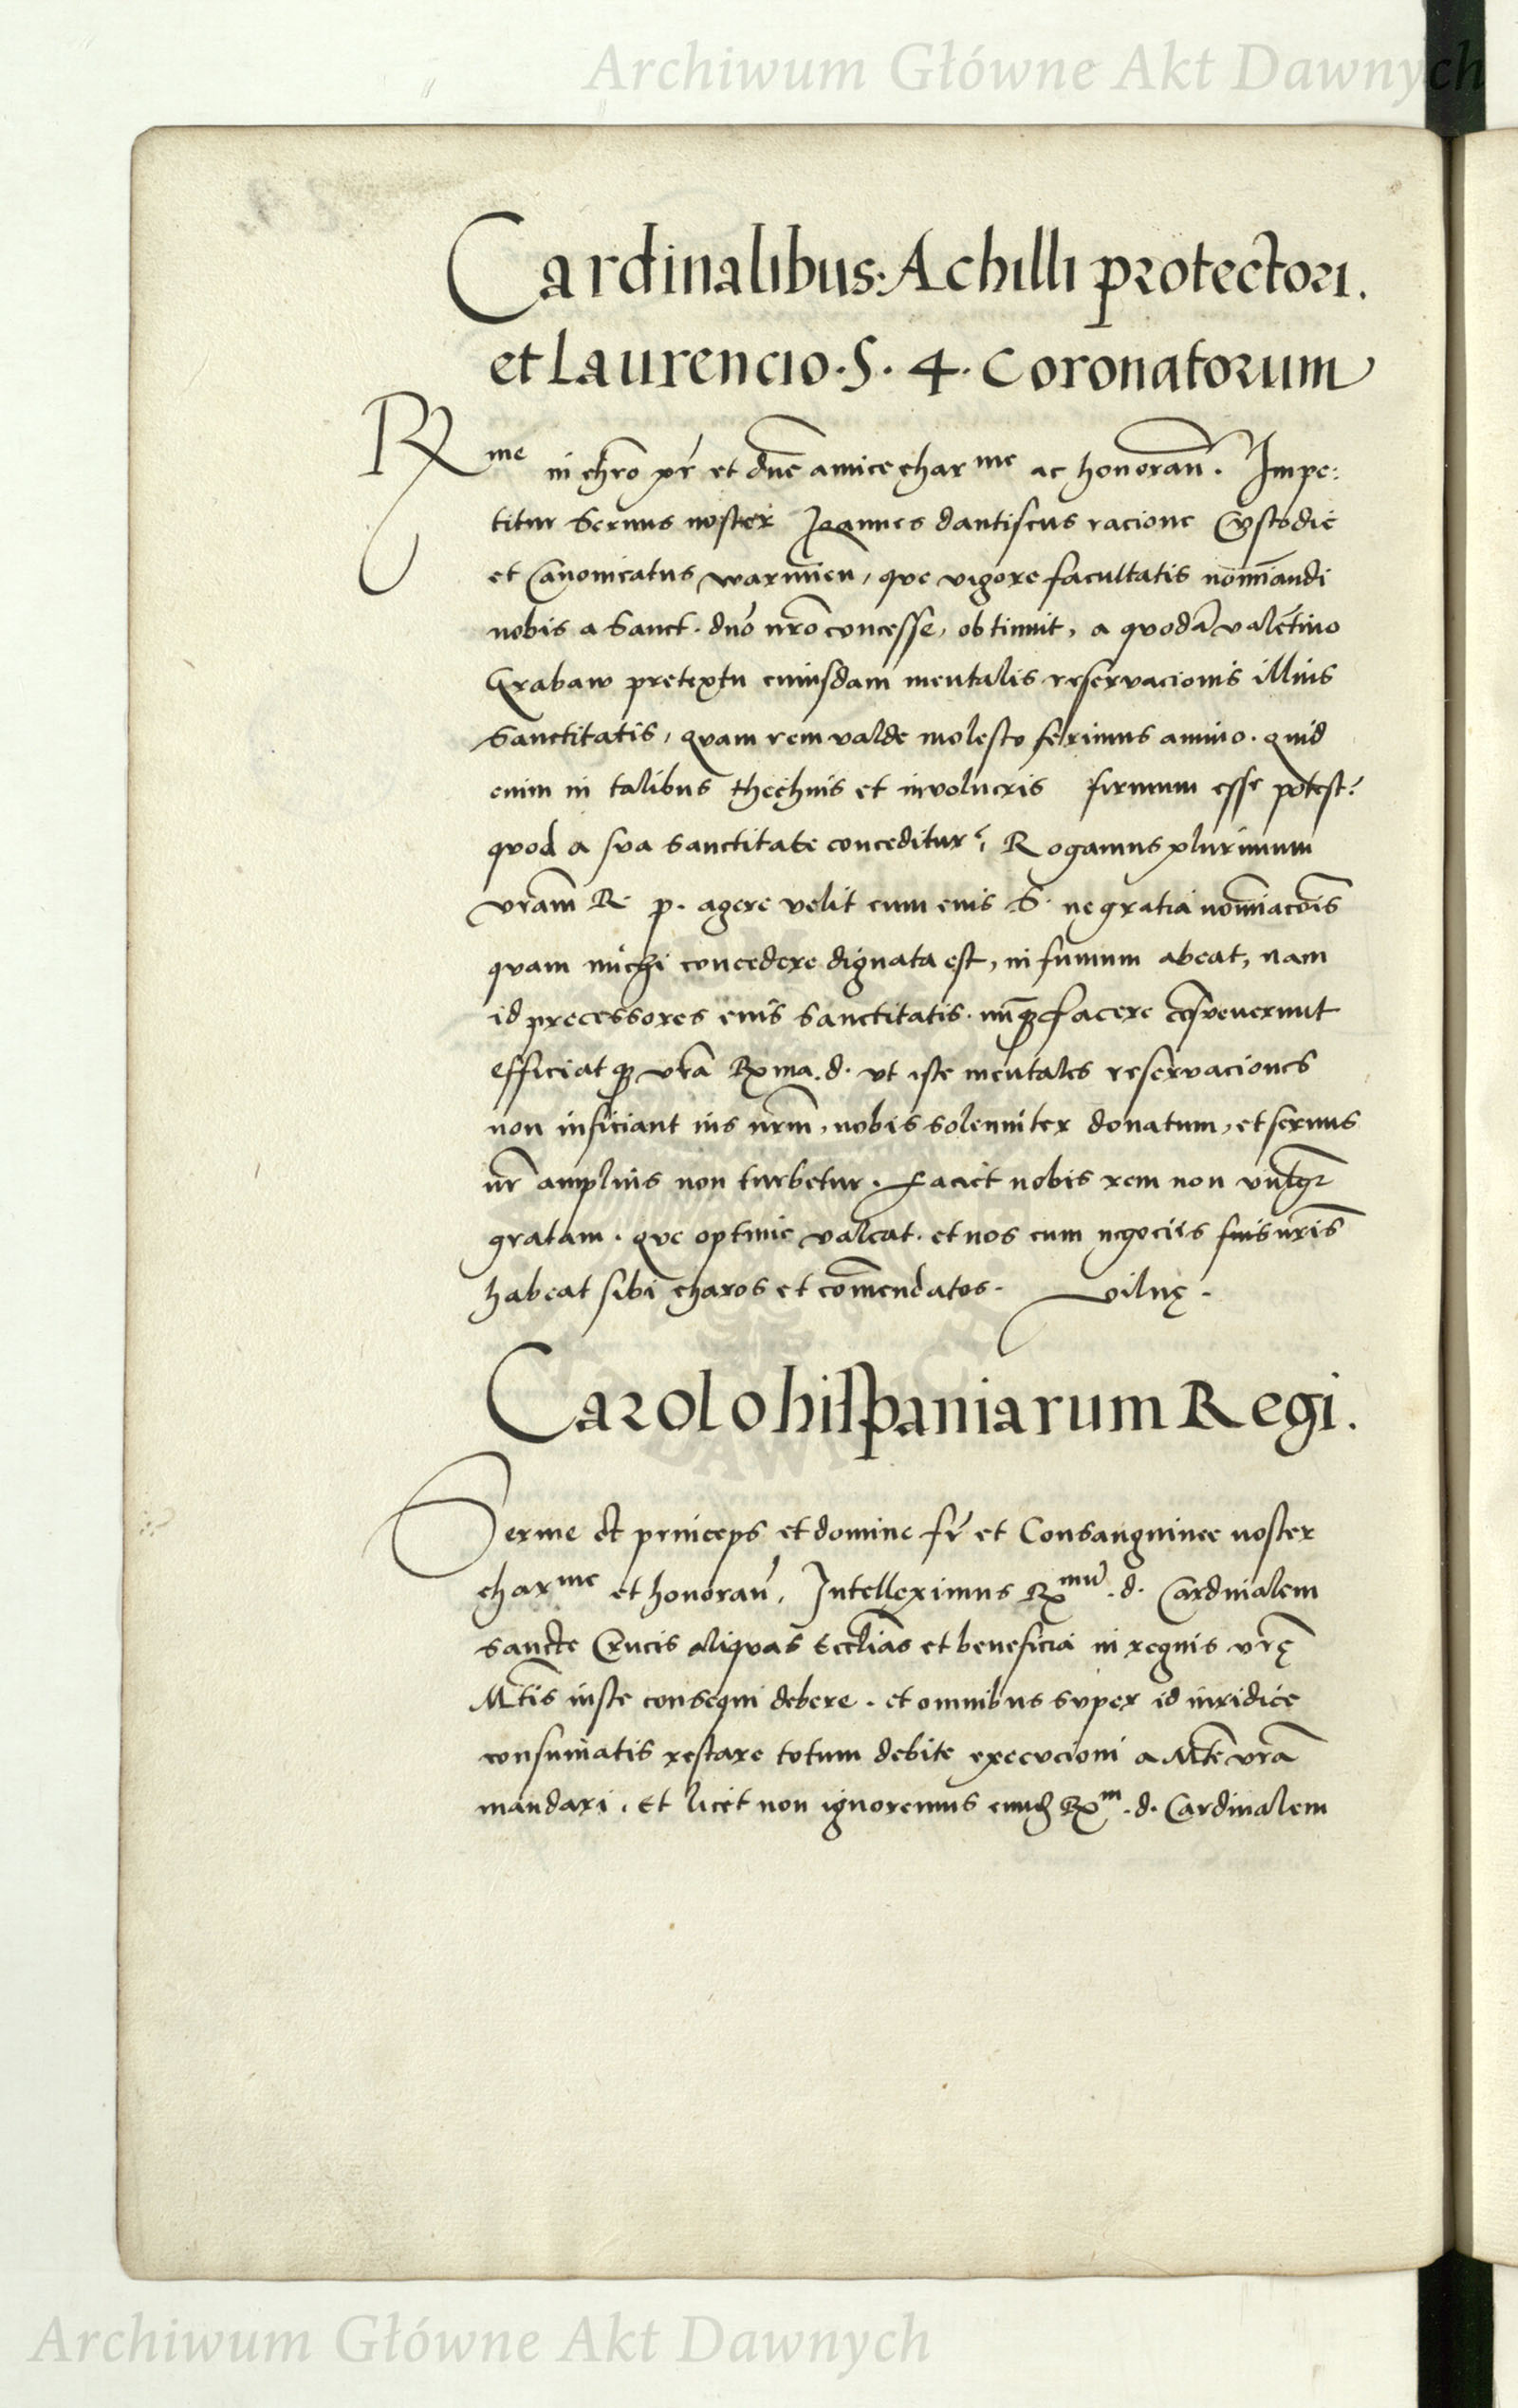 Archiwum Główne Akt Dawnych
Cardinalibus: Achilli protectori.
et Laurencio. S. 4. Coronatorum
Rme in chro pr et dne amice char me ac honoran. Impe:
titur Servus noster Joannes dantiscus racione Custodie
et Canonicatus warmien, que vigore facultatis nominandi
nobis a Sanct. dno nro concesse, obtinuit, a quodā valētino
Grabaw pretextu cuiusdam mentalis reservacionis illius
Sanctitatis, quam rem valde molesto ferimus animo. quid
enim in talibus thechnis et involucris firmum esse potest?
quod a sva Sanctitate conceditur? Rogamus plurimum
vram R. p. agere velit cum eius S. ne gratia nominacōis
quam michi concedere dignata est, in fumum abeat, nam
id precessores eius Sanctitatis. nunq facere cōsveverunt
efficiat q vra Rma. d. vt iste mentales reservaciones
non inficiant ius nrm, nobis solenniter donatum, et servus
nr amplius non turbetur. Faciet nobis rem non
gratam. que optime valeat. et nos cum negociis suis nris
habeat sibi charos et cōmendatos. vilnę.
Carolo hispaniarum Regi.
Serme et princeps et domine fr et Consanguinee noster
char me et honoran. Intelleximus R mu. d. Cardinalem
Sancte Crucis aliquas Ecclias et beneficia in regnis vrę
Mtis iuste consequi debere. et omnibus super id iuridice
consumatis restare totum debite execucioni a Mte vra
mandari. Et licet non ignoremus eund R m. d. Cardinalem
Archiwum Główne Akt Dawnych